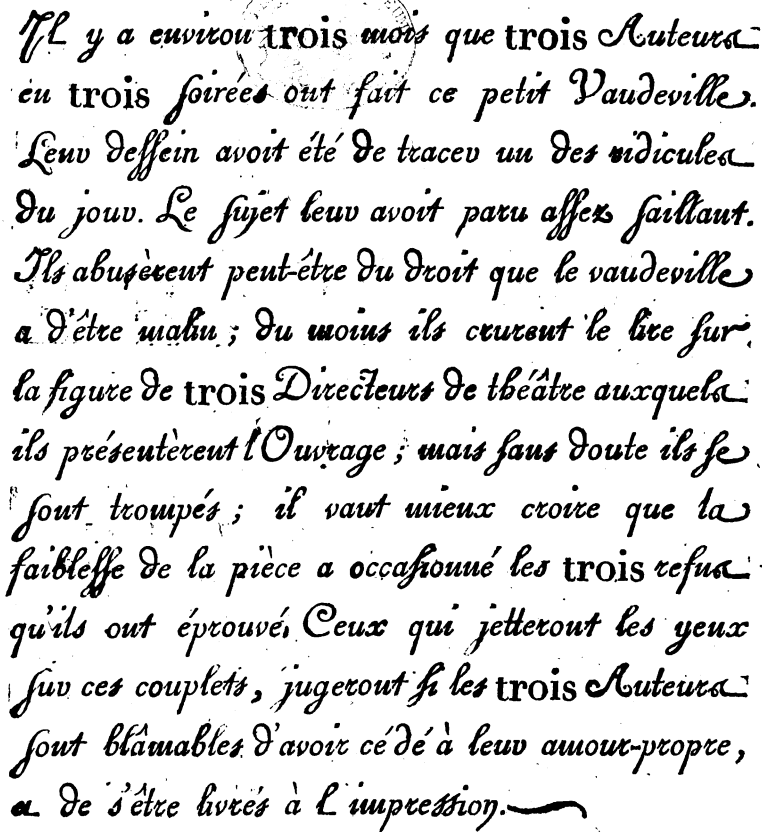 Il y a environ trois mois que trois Auteurs
en trois soirées ont fait ce petit Vaudeville.
Leur dessein avoit été de tracer un des ridicules
du jour. Le sujet leur avoit paru assez saillant.
Ils abusèrent peut-être du droit que le vaudeville
a d'être malin ; du moins ils crurent le lire sur
la figure de trois Directeurs de théâtre auxquels
ils présentèrent l'Ouvrage ; mais sans doute ils se
sont trompés ; il vaut mieux croire que la
faiblesse de la pièce a occasionné les trois refus
qu'ils ont éprouvé. Ceux qui jetteront les yeux
sur ces couplets, jugeront si les trois Auteurs
sont blâmables d'avoir cédé à leur amour-propre,
a de s'être livrés à l'impression.